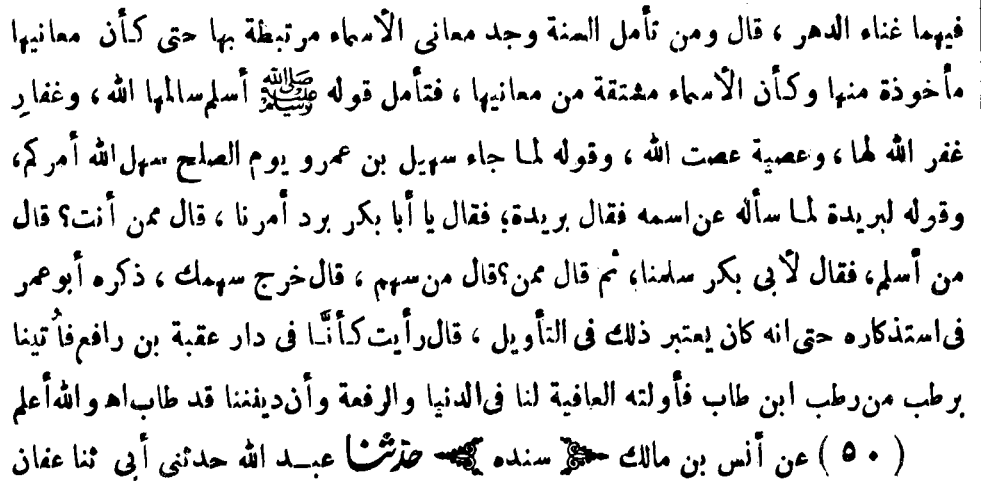 فيهما غناء الدهر ، قال ومن تأمل السنة وجد معانى الأسماء مرتبطة بها حتى كأن معانيها
مأخوذة منها وكأن الأسماء مشتقة من معانيها ، فتأمل قوله ﷺ أسلم سالمها الله ، وغفارِ
غفر الله لها ، وعصية عصت الله ، وقوله لما جاء سهيل بن عمرو يوم الصلح سهل الله أمركم،
وقوله لبريدة لما سأله عن اسمه فقال بريدة؛ فقال يا أبا بكر برد أمرنا ، قال ممن أنت؟ قال
من أسلم، فقال لأبى بكر سلمنا، ثم قال ممن؟ قال من سهم ، قال خرج سهمك ، ذكره أبو عمر
فى استذكاره حتى انه كان يعتبر ذلك فى التأويل ، قال رأيت كأنَّا فى دار عقبة بن رافع فأُتينا
برطب من رطب ابن طاب فأولته العافية لنا فى الدنيا والرفعة وأن ديننا قد طاب اه والله أعلم
( ٥٠ ) عن أنس بن مالك ﴿ سنده ﴾ حدّثنا عبد الله حدثنى أبى ثنا عفان